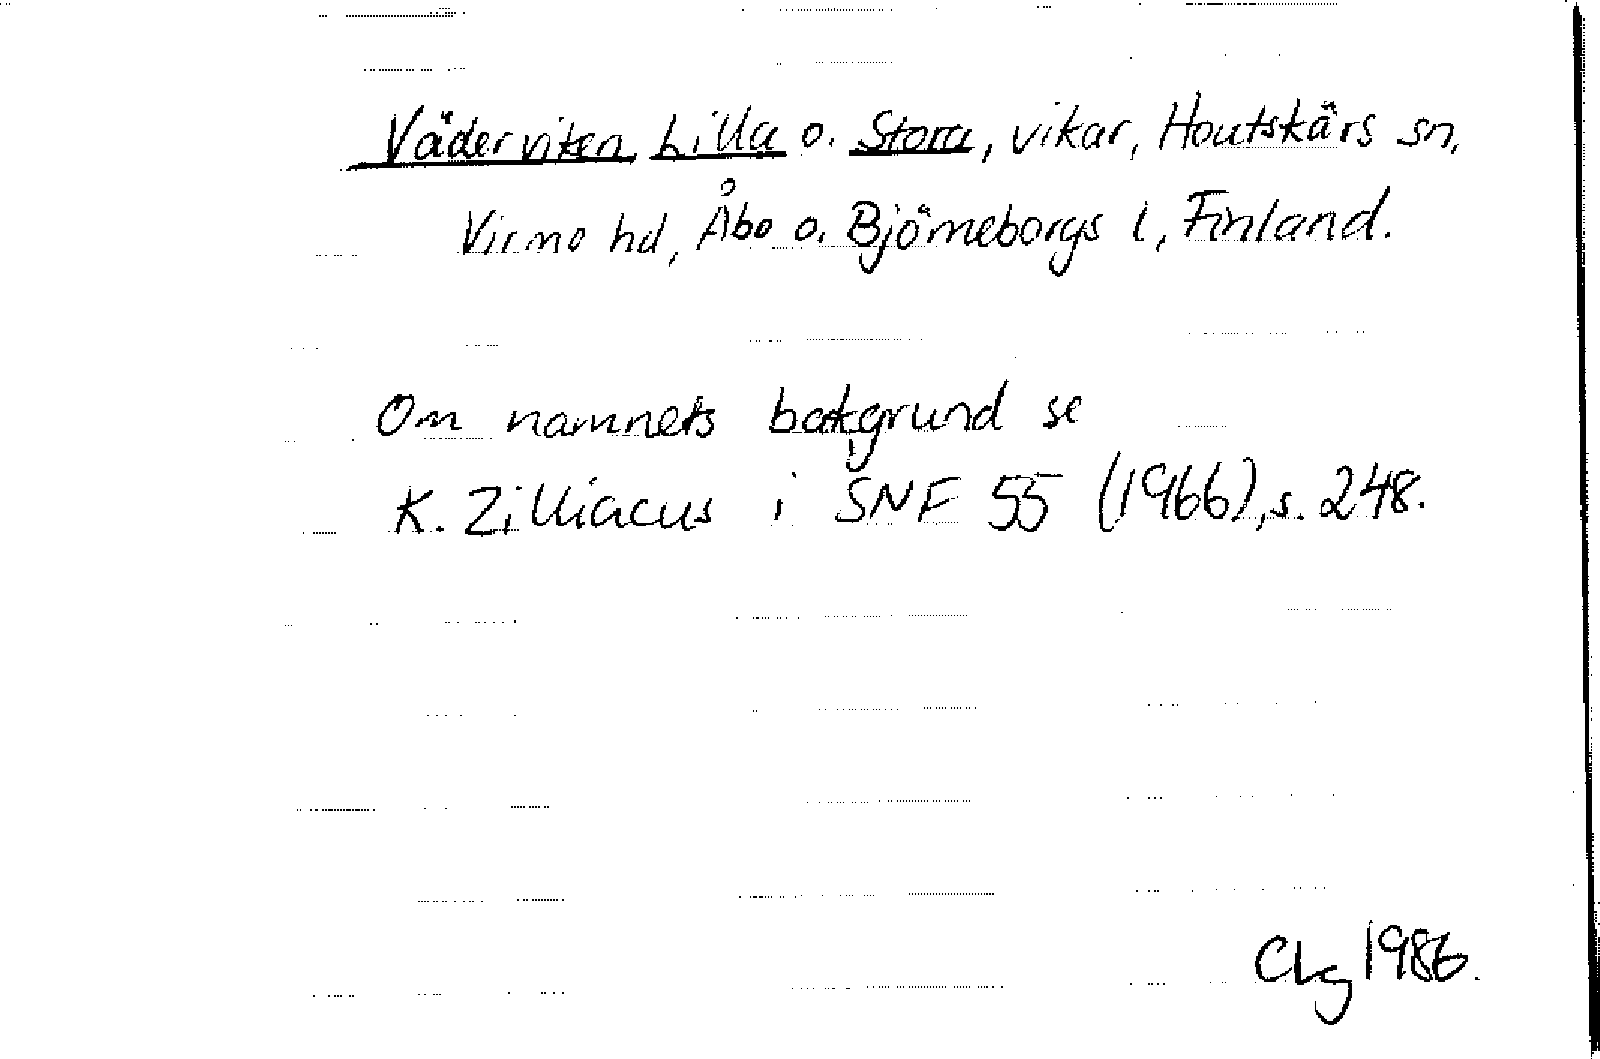 Väderviken, Lilla o. Stora, vikar, Houtskärs sn,
Virmo hd, Åbo o. Björneborgs l, Finland.
Om namnets bakgrund se
K. Zilliacus i SNF 55 (1966), s. 248.
CLg 1986.